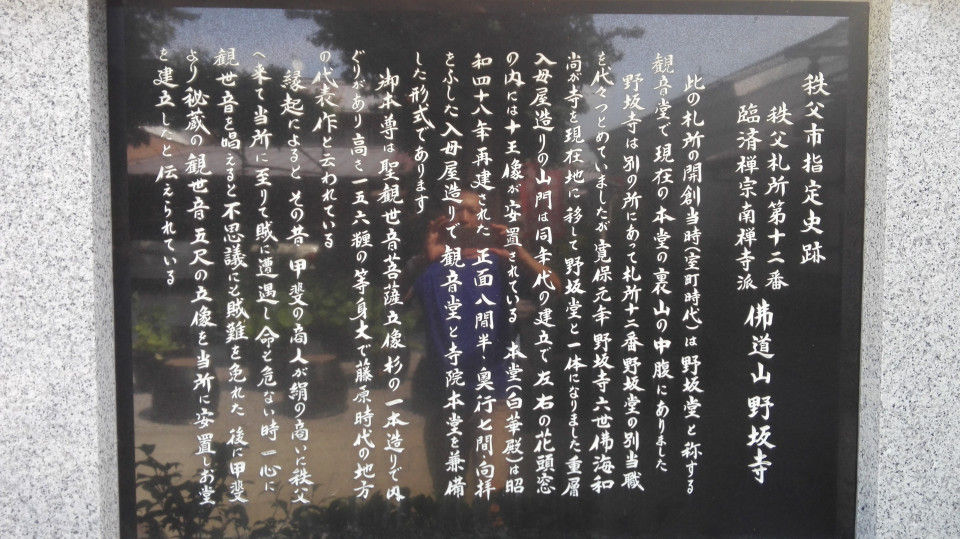 秩父市指定史跡
秩父札所第十二番
臨済禅宗南禅寺派
佛道山野坂寺
此の札所の開創当時(室町時代)は野坂堂と称する
観音堂で現在の本堂の裏山の中腹にありました
野坂寺は別の所にあって札所十二番野坂堂の別当職
を代々つとめていましたが寛保元年野坂寺六世佛海和
尚が寺を現在地に移して野坂堂と一体になりました重層
入母屋造りの山門は同年代の建立で左右の花頭窓
の内には十王像が安置されている 本堂(白華殿)は昭
和四十八年再建された正面八間半・奥行七間・向拝
をふした入母屋造りで観音堂と寺院本堂を兼備
した形式であります
御本尊は聖観世音菩薩立像杉の一本造りで内
ぐりがあり高さ一五六糎の等身大で藤原時代の地方
の代表作と云われている
縁起によると その昔甲斐の商人が絹の商いに秩父
へ来て当所に至りて賊に遭遇し命と危ない時一心に
観世音を唱えると不思議にも賊難を免れた 後に甲斐
より秘蔵の観世音五尺の立像を当所に安置しお堂
を建立したと伝えられている